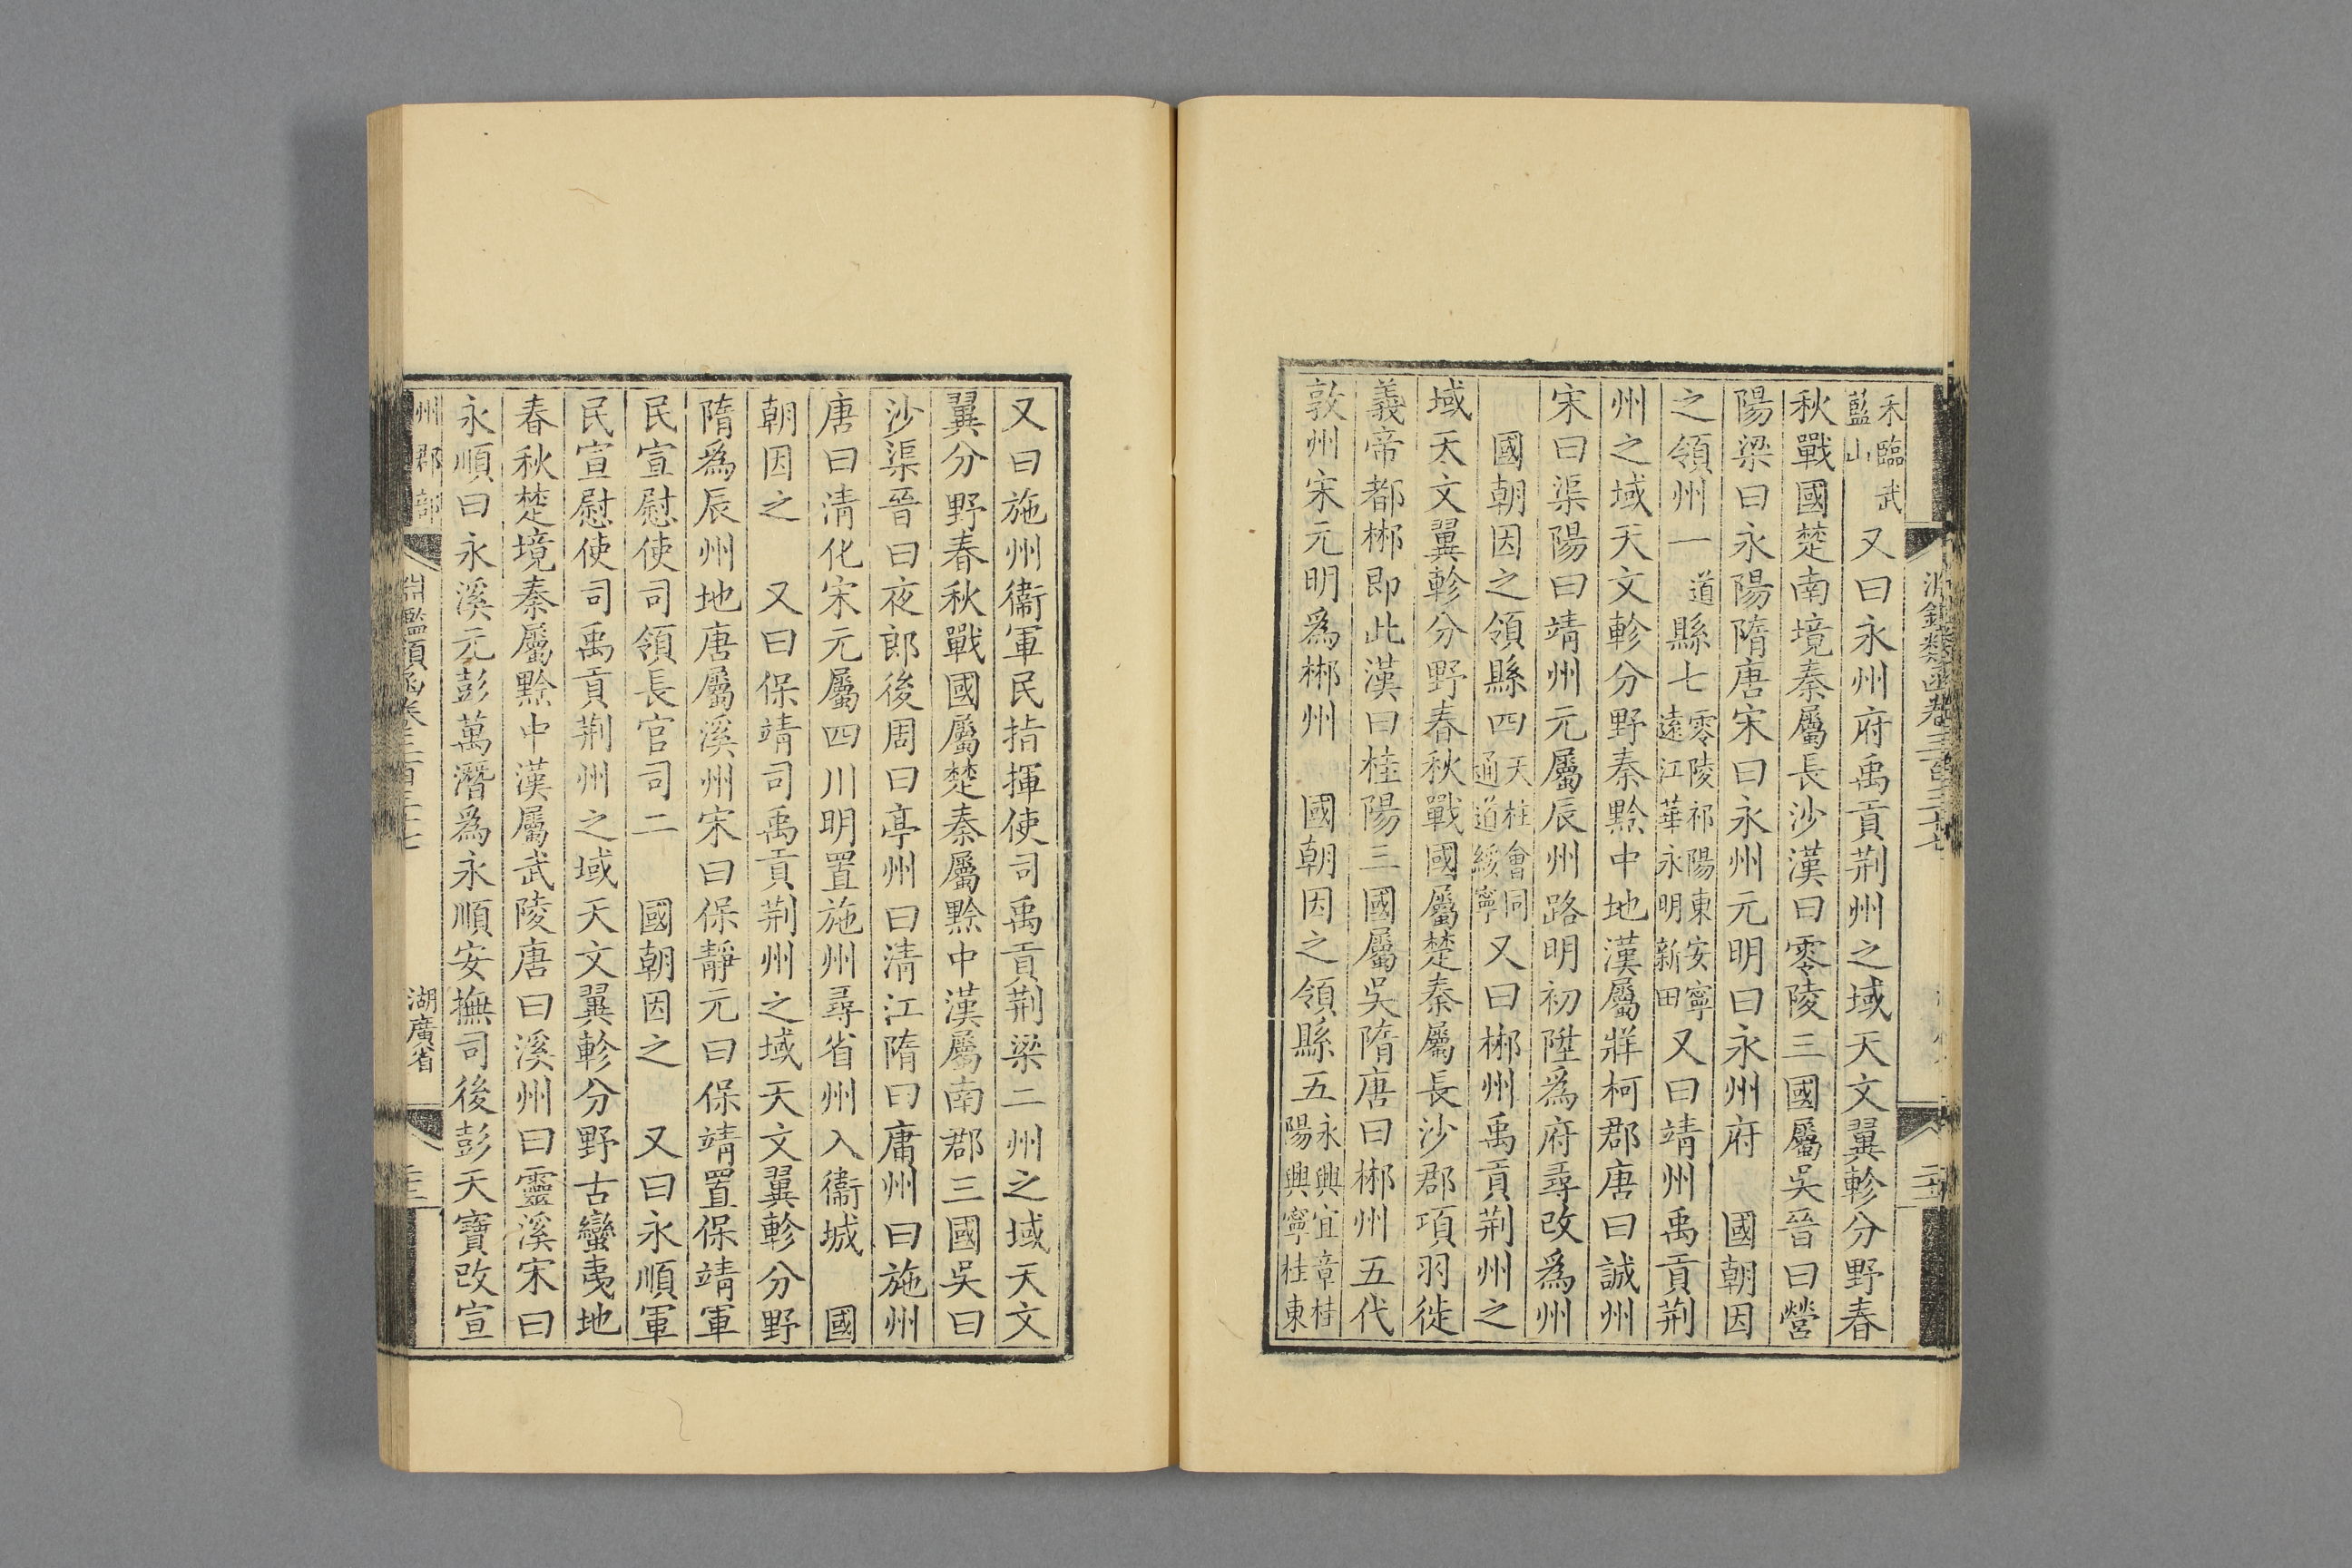 禾臨武藍山又曰永州府禹貢荆州之域天文翼軫分野春
秋戰國楚南境秦屬長沙漢曰零陵三國屬吳晉曰營
陽梁曰永陽隋唐宋曰永州元明曰永州府 國朝因
之領州一道縣七零陵祁陽東安寧遠江華永明新田又曰靖州禹貢荆
州之域天文軫分野秦黔中地漢屬牂柯郡唐曰誠州
宋曰渠陽曰靖州元屬辰州路明初陞爲府尋改爲州
國朝因之領縣四天柱會同通道綏寧又曰郴州禹貢荆州之
域天文翼軫分野春秋戰國屬楚秦屬長沙郡項羽徙
義帝都郴即此漢曰桂陽三國屬吳隋唐曰郴州五代
敦州宋元明爲郴州 國朝因之領縣五永興宜章桂陽興寧桂東
又曰施州衞軍民指揮使司禹貢荆梁二州之域天文
翼分野春秋戰國屬楚秦屬黔中漢屬南郡三國吳曰
沙渠晉曰夜郎後周曰亭州曰清江隋曰庸州曰施州
唐曰清化宋元屬四川明置施州尋省州入衞城 國
朝因之 又曰保靖司禹貢荆州之域天文翼軫分野
隋爲辰州地唐屬溪州宋曰保靜元曰保靖置保靖軍
民宣慰使司領長官司二 國朝因之 又曰永順軍
民宣慰使司禹貢荆州之域天文翼軫分野古蠻夷地
春秋楚境秦屬黔中漢屬武陵唐曰溪州曰靈溪宋曰
永順曰永溪元彭萬潛爲永順安撫司後彭天寶改宣
州郡部 淵鑑類函卷三百三十七 湖廣省